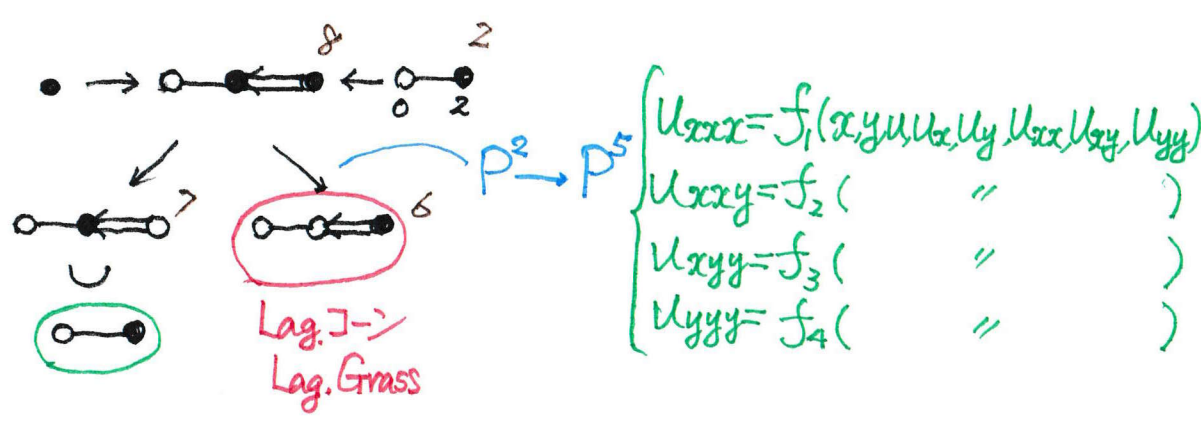 8
2
0 2
P² → P⁵
7
6
Lag.コーン
Lag. Grass
Uxxx = f₁(x,y,u,ux,uy,uxx,uxy,uyy)
Uxxy = f₂( 〃 )
Uxyy = f₃( 〃 )
Uyyy = f₄( 〃 )